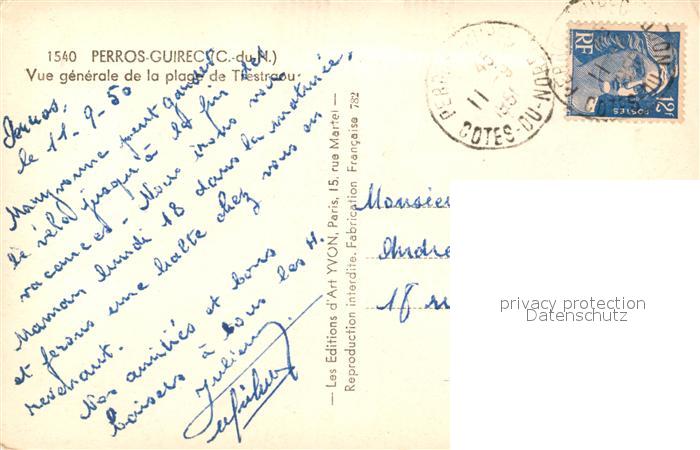 1540 PERROS-GUIREC (C.-du-N.)
Vue générale de la plage de Trestraou
Perros,
le 11-9-50
Maryvonne peut garder
le vélo jusqu'à la fin des
vacances - Nous irons voir
Maman lundi 18 dans la matinée,
et ferons une halte chez vous en
revenant.
Nos amitiés et bons
baisers à tous les 4.
Julien
— Les Editions d'Art YVON, Paris, 15, rue Martel —
Reproduction interdite. Fabrication Française 782
COTES-DU-N
11
RF
12F
POSTES
Monsieur
André
18 ru
privacy protection
Datenschutz